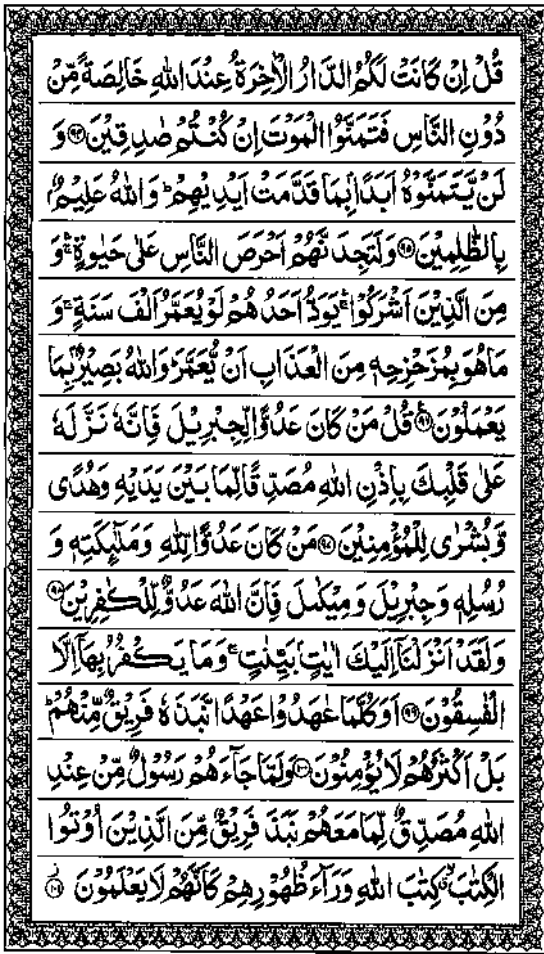 قُلْ اِنْ كَانَتْ لَكُمُ الدَّارُ الْاٰخِرَةُ عِنْدَ اللّٰهِ خَالِصَةً مِّنْ
دُوْنِ النَّاسِ فَتَمَنَّوُا الْمَوْتَ اِنْ كُنْتُمْ صٰدِقِيْنَ ﴿۹۴﴾ وَ
لَنْ يَّتَمَنَّوْهُ اَبَدًاۢ بِمَا قَدَّمَتْ اَيْدِيْهِمْ ؕ وَاللّٰهُ عَلِيْمٌۢ
بِالظّٰلِمِيْنَ ﴿۹۵﴾ وَلَتَجِدَنَّهُمْ اَحْرَصَ النَّاسِ عَلٰى حَيٰوةٍ ۛۚ وَ
مِنَ الَّذِيْنَ اَشْرَكُوْا ۛۚ يَوَدُّ اَحَدُهُمْ لَوْ يُعَمَّرُ اَلْفَ سَنَةٍ ۚ وَ
مَا هُوَ بِمُزَحْزِحِهٖ مِنَ الْعَذَابِ اَنْ يُّعَمَّرَ ؕ وَاللّٰهُ بَصِيْرٌۢ بِمَا
يَعْمَلُوْنَ ﴿۹۶﴾ قُلْ مَنْ كَانَ عَدُوًّا لِّجِبْرِيْلَ فَاِنَّهٗ نَزَّلَهٗ
عَلٰى قَلْبِكَ بِاِذْنِ اللّٰهِ مُصَدِّقًا لِّمَا بَيْنَ يَدَيْهِ وَهُدًى
وَّبُشْرٰى لِلْمُؤْمِنِيْنَ ﴿۹۷﴾ مَنْ كَانَ عَدُوًّا لِّلّٰهِ وَمَلٰٓئِكَتِهٖ وَ
رُسُلِهٖ وَجِبْرِيْلَ وَمِيْكٰىلَ فَاِنَّ اللّٰهَ عَدُوٌّ لِّلْكٰفِرِيْنَ ﴿۹۸﴾
وَلَقَدْ اَنْزَلْنَاۤ اِلَيْكَ اٰيٰتٍۭ بَيِّنٰتٍ ۚ وَمَا يَكْفُرُ بِهَاۤ اِلَّا
الْفٰسِقُوْنَ ﴿۹۹﴾ اَوَكُلَّمَا عٰهَدُوْا عَهْدًا نَّبَذَهٗ فَرِيْقٌ مِّنْهُمْ ؕ
بَلْ اَكْثَرُهُمْ لَا يُؤْمِنُوْنَ ﴿۱۰۰﴾ وَلَمَّا جَآءَهُمْ رَسُوْلٌ مِّنْ عِنْدِ
اللّٰهِ مُصَدِّقٌ لِّمَا مَعَهُمْ نَبَذَ فَرِيْقٌ مِّنَ الَّذِيْنَ اُوْتُوا
الْكِتٰبَ ۙ كِتٰبَ اللّٰهِ وَرَآءَ ظُهُوْرِهِمْ كَاَنَّهُمْ لَا يَعْلَمُوْنَ ﴿۱۰۱﴾